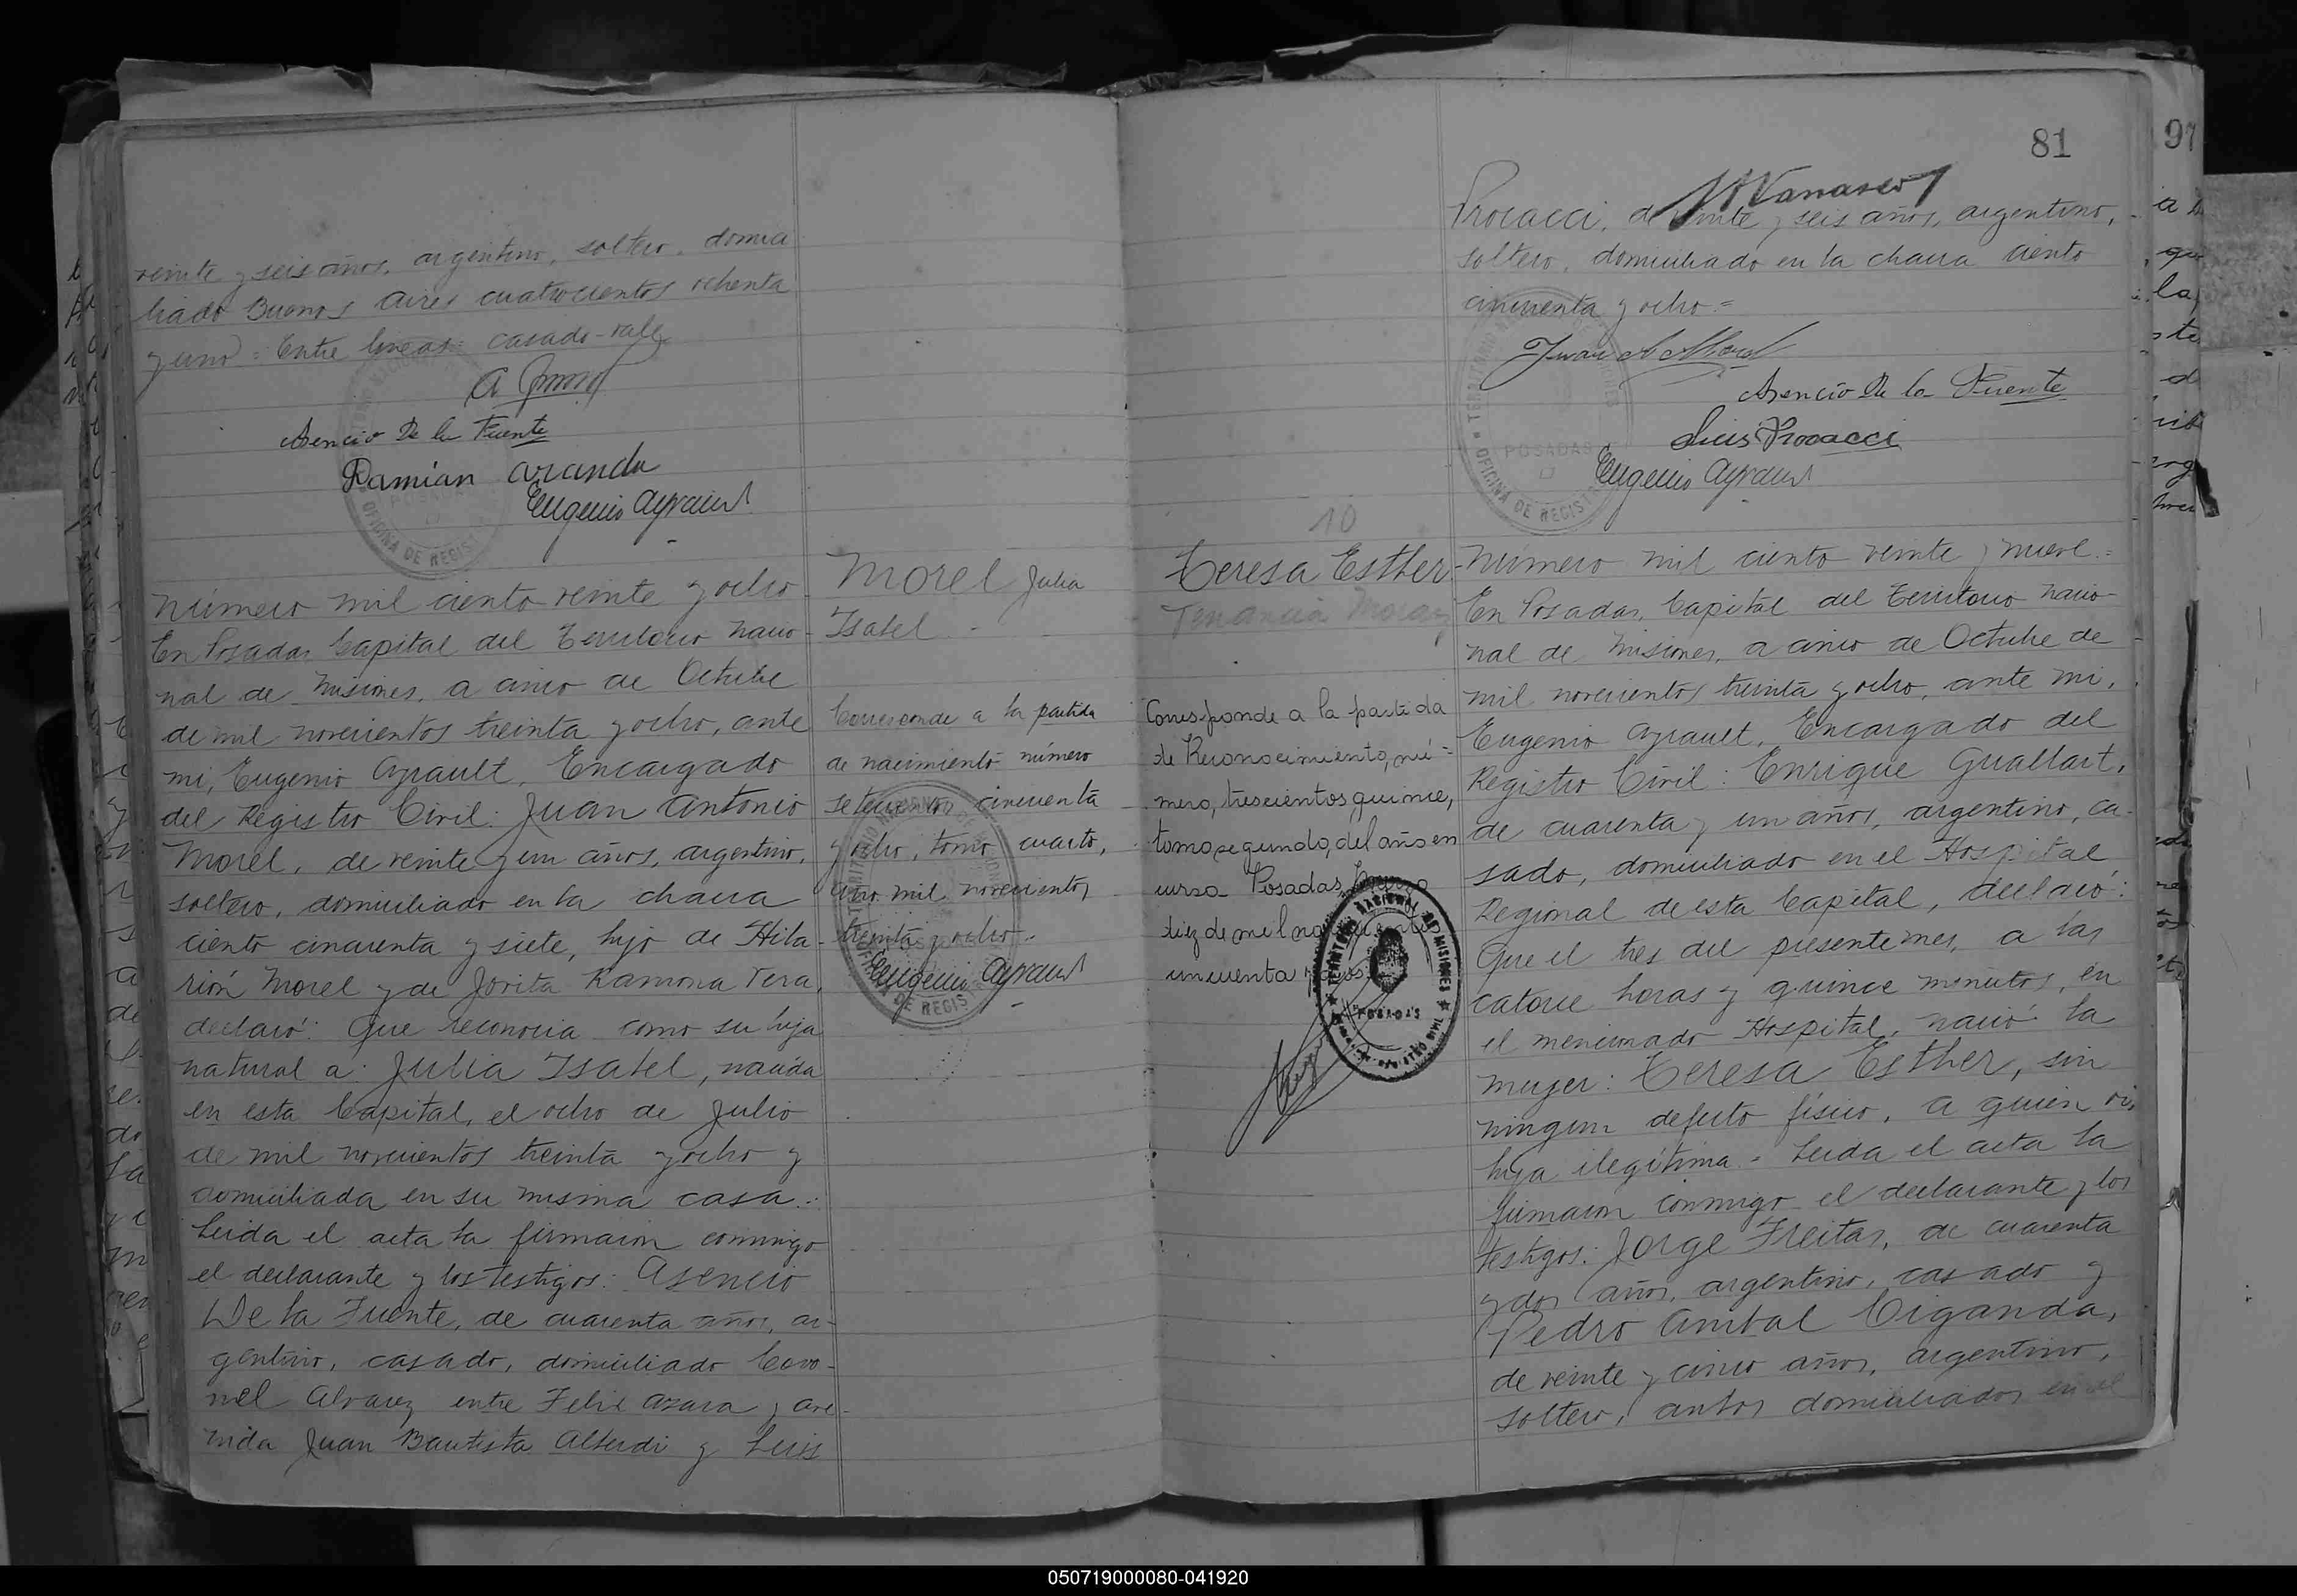 veinte y seis años, argentino, soltero, domici
liado Buenos Aires cuatrocientos ochenta
y uno = Entre lineas: casado - vale
Asencio De la Fuente
Damián Aranda
Eugenio Ayrault
Número mil ciento veinte y ocho
En Posadas Capital del Territorio Nacio-
nal de Misiones, a cinco de Octubre
de mil novecientos treinta y ocho, ante
mi, Eugenio Ayrault, Encargado
del Registro Civil: Juan Antonio
Morel, de veinte y un años, argentino,
soltero, domiciliado en la chacra
ciento cincuenta y siete, hijo de Hila-
rión Morel y de Jovita Ramona Vera,
declaró: Que reconocia como su hija
natural a: Julia Isabel, nacida
en esta Capital, el ocho de Julio
de mil novecientos treinta y ocho y
domiciliada en su misma casa.:
Leida el acta la firmaron conmigo
el declarante y los testigos: Asencio
De la Fuente, de cuarenta años, ar-
gentino, casado, domiciliado Coro-
nel Alvarez entre Felix Azara y ave-
nida Juan Bautista Alberdi y Luis
Morel Julia
Isabel -
Corresponde a la partida
de nacimiento número
setecientos cincuenta
y ocho, tomo cuarto,
año mil novecientos
treinta y ocho.-
Eugenio Ayrault
81
97
Procacci, de veinte y seis años, argentino,
soltero, domiciliado en la chacra ciento
cincuenta y ocho =
Juan A Morel
Asencio De la Fuente
Luis Procacci
Eugenio Ayrault
POSADAS
OFICINA DE REGIS
10
Teresa Esther
Corresponde a la partida
de Reconocimiento, nú-
mero, trescientos quince,
tomo segundo, del año en
curso. Posadas,
diez de mil
cincuenta
TERRITORIO NACIONAL DE MISIONES
POSADAS
Número mil ciento veinte y nueve =
En Posadas, Capital del Territorio Nacio-
nal de Misiones, a cinco de Octubre de
mil novecientos treinta y ocho, ante mi,
Eugenio Ayrault, Encargado del
Registro Civil: Enrique Guallart,
de cuarenta y un años, argentino, ca-
sado, domiciliado en el Hospital
Regional de esta Capital, declaró:
Que el tres del presente mes, a las
catorce horas y quince minutos, en
el mencionado Hospital, nació la
mujer: Teresa Esther, sin
ningun defecto físico, a quien vi,
hija ilegítima - Leida el acta la
firmaron conmigo el declarante y los
testigos: Jorge Freitas, de cuarenta
y dos años, argentino, casado y
Pedro Anibal Ciganda,
de veinte y cinco años, argentino,
soltero, ambos domiciliados en el
050719000080-041920